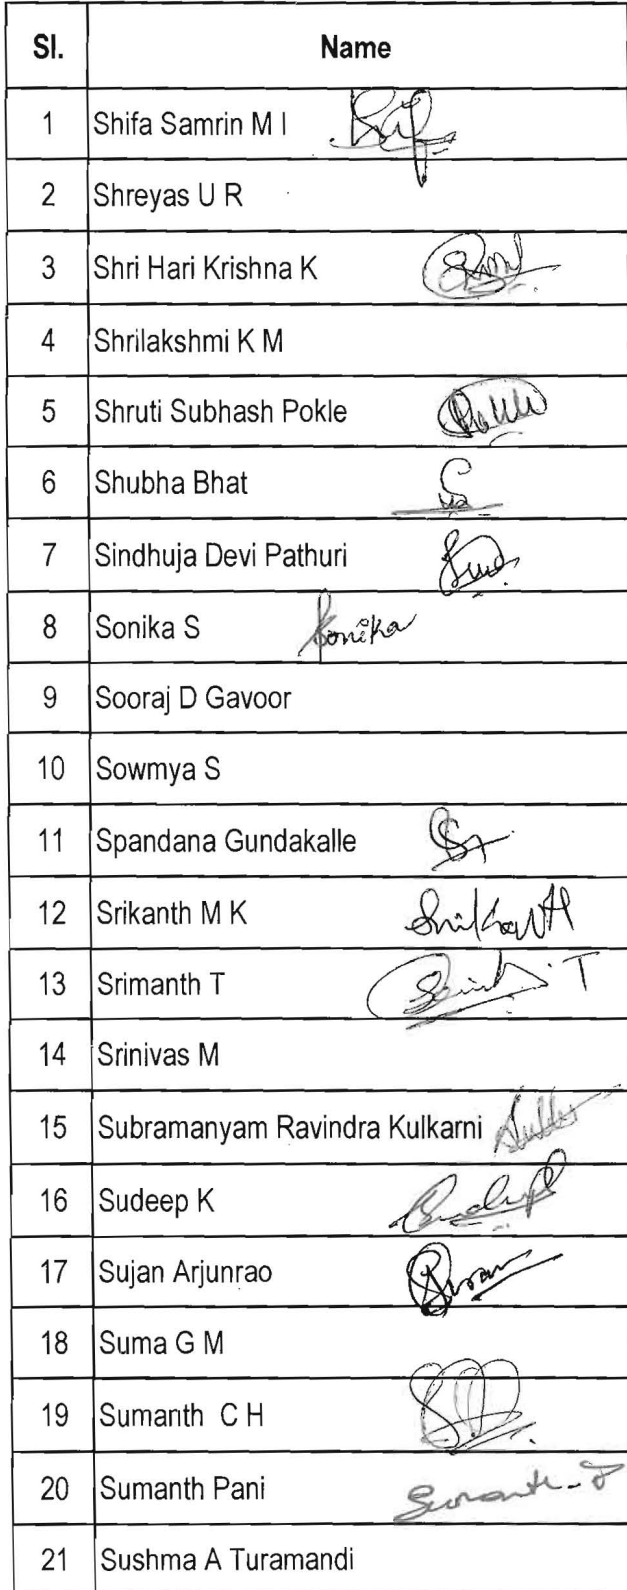 Sl. Name
1 Shifa Samrin M I
2 Shreyas U R
3 Shri Hari Krishna K
4 Shrilakshmi K M
5 Shruti Subhash Pokle
6 Shubha Bhat
7 Sindhuja Devi Pathuri
8 Sonika S Sonika
9 Sooraj D Gavoor
10 Sowmya S
11 Spandana Gundakalle
12 Srikanth M K Srikanth
13 Srimanth T
14 Srinivas M
15 Subramanyam Ravindra Kulkarni
16 Sudeep K
17 Sujan Arjunrao
18 Suma G M
19 Sumanth C H
20 Sumanth Pani Sumanth-P
21 Sushma A Turamandi